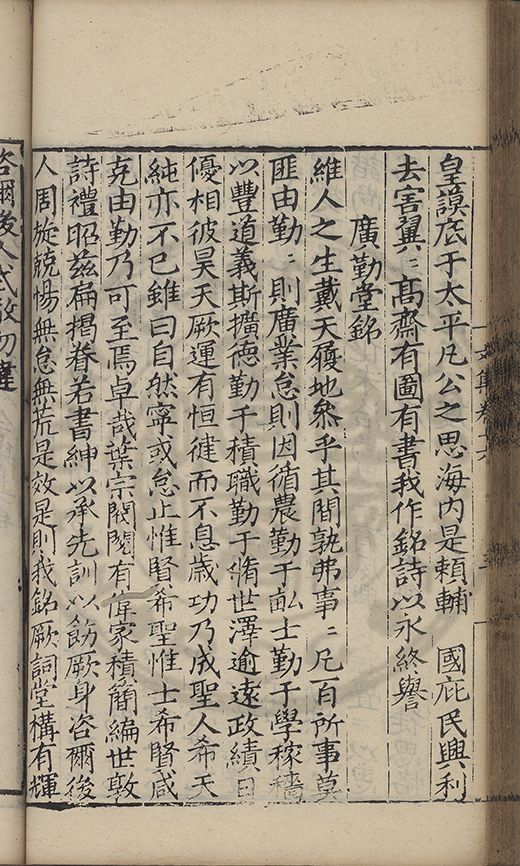 皇謨底于太平凡公之思海内是頼輔　國庇民興利
去害翼〻髙齋有圖有書我作銘詩以永終譽
廣勤堂銘
維人之生戴天履地叅乎其間孰弗事〻凡百所事莫
匪由勤〻則廣業怠則因循農勤于畝士勤于學稼穡
以豐道義斯擴德勤于積職勤于脩世澤逾遠政績日
優相彼昊天厥運有恒徤而不息歳功乃成聖人希天
純亦不已雖曰自然寧或怠止惟賢希聖惟士希賢咸
克由勤乃可至焉卓哉葉宗閥閱有偉家積簡編世敦
詩禮昭兹扁揭眷若書紳以承先訓以飭厥身咨爾後
人周旋兢惕無怠無荒是效是則我銘厥詞堂構有輝
咨爾後人式敬勿違